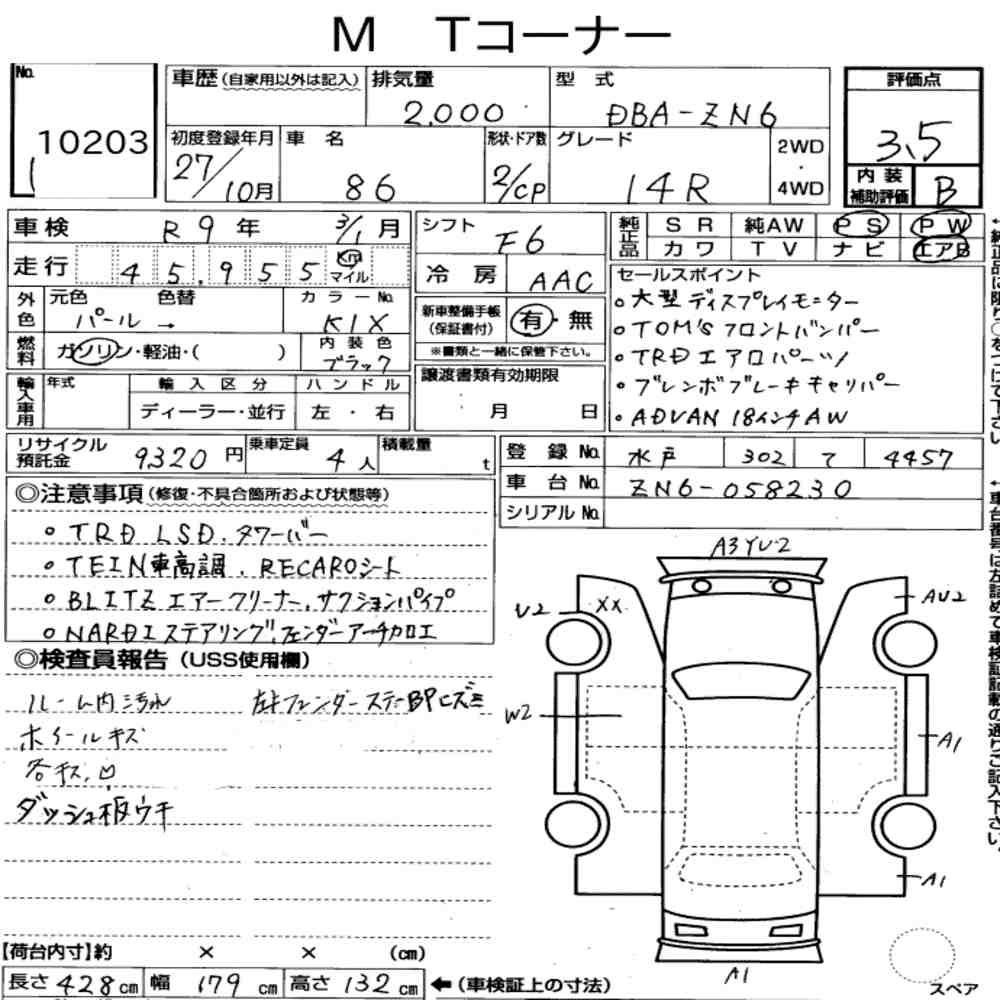 M Tコーナー
No.
10203
車歴 (自家用以外は記入) 排気量 2,000 型式 DBA-ZN6
評価点 3.5
初度登録年月 27/10月 車名 86 形状・ドア数 2/CP グレード 14R 2WD・4WD
内装補助評価 B
車検 R9年 3/1月
シフト F6
純正品 SR 純AW PS PW
カワ TV ナビ エアB
走行 45,955 Km マイル
冷房 AAC
セールスポイント
・大型ディスプレイモニター
・TOM'Sフロントバンパー
・TRDエアロパーツ
・ブレンボブレーキキャリパー
・ADVAN 18インチAW
外色 元色 色替 カラーNo.
パール → K1X
新車整備手帳(保証書付) 有・無
※書類と一緒に保管下さい。
燃料 ガソリン・軽油・( ) 内装色 ブラック
輸入車用 年式 輸入区分 ハンドル
ディーラー・並行 左・右
譲渡書類有効期限
月 日
リサイクル預託金 9320円 乗車定員 4人 積載量 t
登録No. 水戸 302 て 4457
車台No. ZN6-058230
シリアルNo.
◎注意事項(修復・不具合箇所および状態等)
・TRD LSD.タワーバー
・TEIN車高調.RECAROシート
・BLITZエアークリーナー.サクションパイプ
・NARDIステアリング.フェンダーアーチカロエ
◎検査員報告(USS使用欄)
ルーム内ミ汚れ
ホイールキズ
各キズ,凹
ダッシュ板ウキ
左トフェンダーステーBPヒズミ
A3YU2
U2
XX
AU2
W2
A1
A1
A1
【荷台内寸】約 × × (cm)
長さ428cm 幅179cm 高さ132cm ←(車検証上の寸法)
スペア